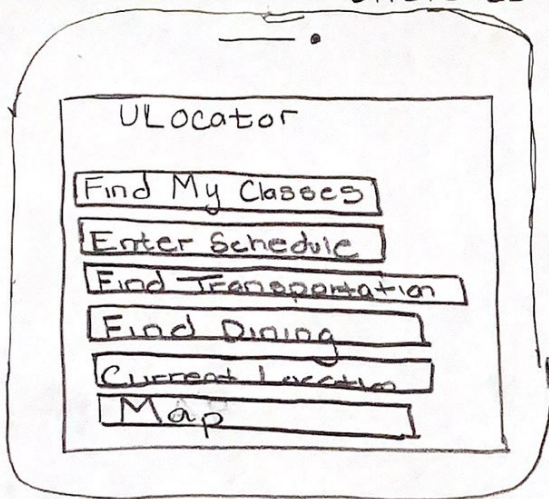 ULocator
Find My Classes
Enter Schedule
Find Transportation
Find Dining
Current Location
Map